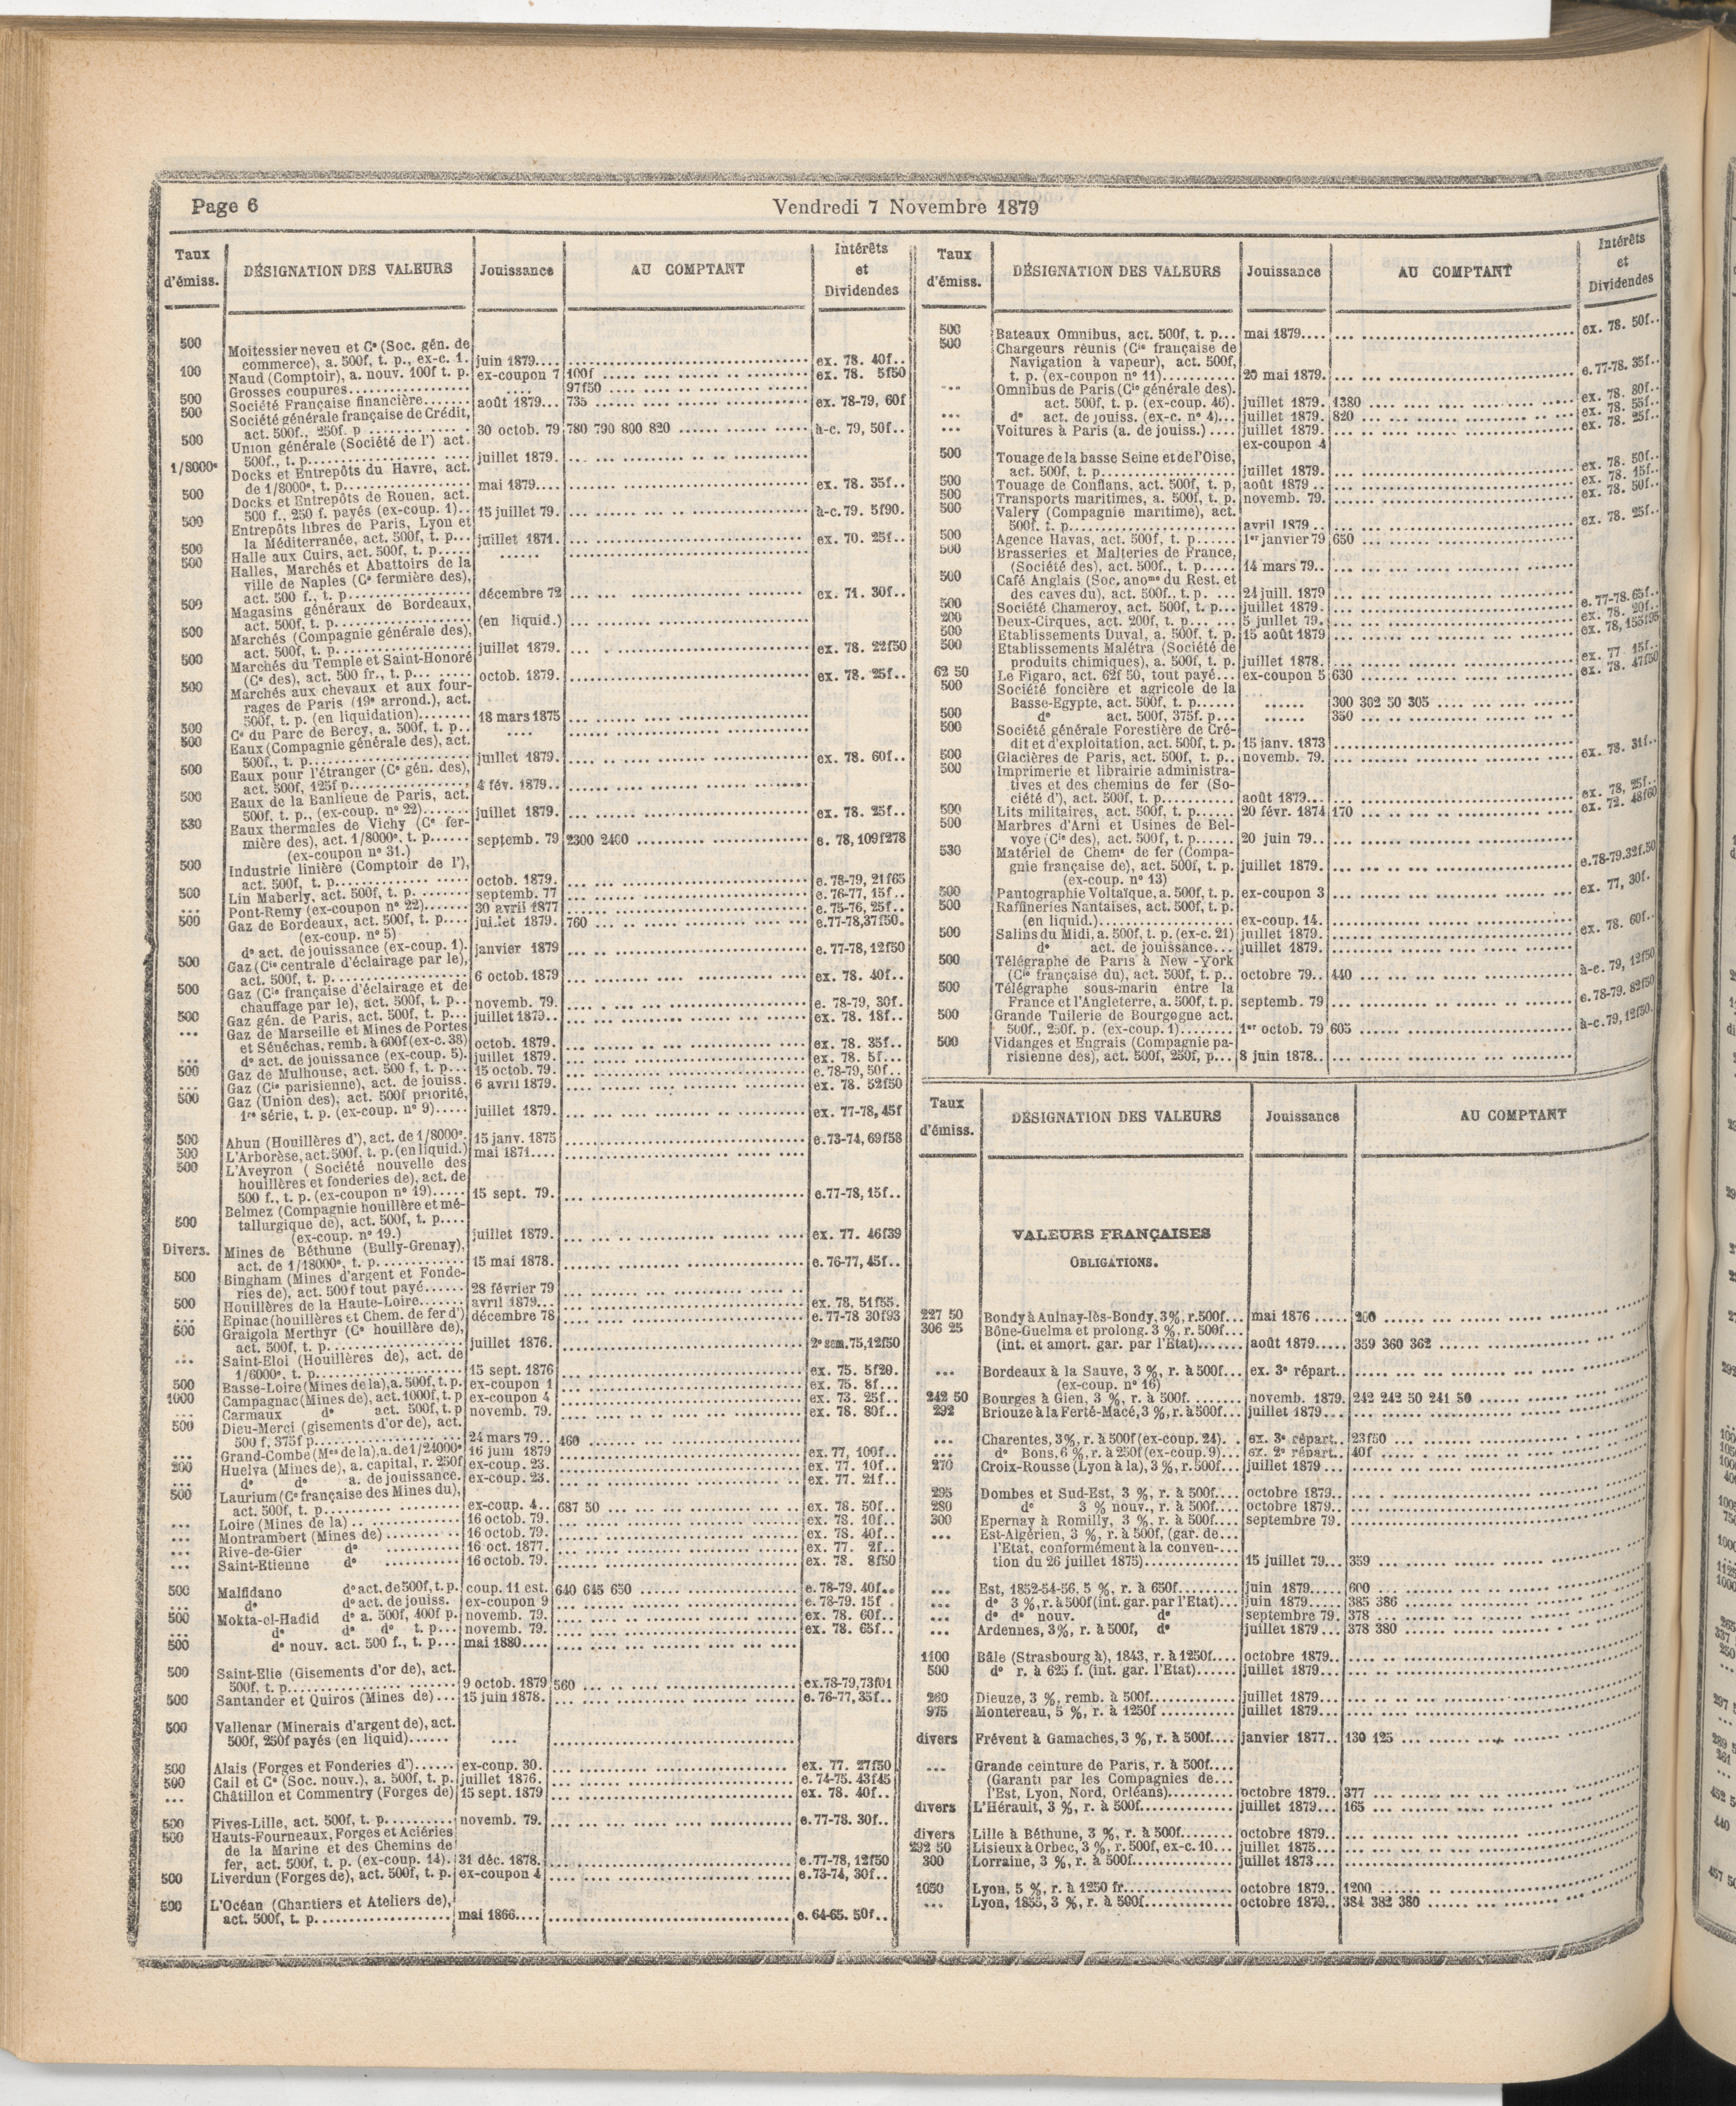 Page 6
Vendredi 7 Novembre 1879
Taux d'émiss.
DÉSIGNATION DES VALEURS
Jouissance
AU COMPTANT
Intérêts et Dividendes
500 Moitessier neveu et Cᵉ (Soc. gén. de
commerce), a. 500f, t. p., ex-c. 1. juin 1879.... ex. 78. 40f..
100 Naud (Comptoir), a. nouv. 100f t. p. ex-coupon 7 100f ex. 78. 5f50
Grosses coupures 97f50
500 Société Française financière août 1879... 735 ex. 78-79, 60f
500 Société générale française de Crédit,
act. 500f., 250f. p 30 octob. 79 780 790 800 820 à-c. 79, 50f..
500 Union générale (Société de l') act.
500f., t. p. juillet 1879.
1/8000ᵉ Docks et Entrepôts du Havre, act.
de 1/8000ᵉ, t. p. mai 1879.... ex. 78. 35f..
500 Docks et Entrepôts de Rouen, act.
500 f., 250 f. payés (ex-coup. 1).. 15 juillet 79. à-c. 79. 5f90.
500 Entrepôts libres de Paris, Lyon et
la Méditerranée, act. 500f, t. p... juillet 1871. ex. 70. 25f..
500 Halle aux Cuirs, act. 500f, t. p.....
500 Halles, Marchés et Abattoirs de la
ville de Naples (Cᵉ fermière des),
act. 500 f., t. p. décembre 72 ex. 71. 30f..
500 Magasins généraux de Bordeaux,
act. 500f, t. p. (en liquid.)
500 Marchés (Compagnie générale des),
act. 500f, t. p. juillet 1879. ex. 78. 22f50
500 Marchés du Temple et Saint-Honoré
(Cᵉ des), act. 500 fr., t. p. octob. 1879. ex. 78. 25f..
500 Marchés aux chevaux et aux four-
rages de Paris (19ᵉ arrond.), act.
500f, t. p. (en liquidation) 18 mars 1875
500 Cᵉ du Parc de Bercy, a. 500f, t. p..
500 Eaux (Compagnie générale des), act.
500f., t. p. juillet 1879. ex. 78. 60f..
500 Eaux pour l'étranger (Cᵉ gén. des),
act. 500f, 125f p. 4 fév. 1879..
500 Eaux de la Banlieue de Paris, act.
500f, t. p., (ex-coup. nº 22) juillet 1879. ex. 78. 25f..
530 Eaux thermales de Vichy (Cᵉ fer-
mière des), act. 1/8000ᵉ, t. p. septemb. 79 2300 2400 e. 78, 109f278
(ex-coupon nº 31.)
500 Industrie linière (Comptoir de l'),
act. 500f, t. p. octob. 1879. e. 78-79, 21f65
500 Lin Maberly, act. 500f, t. p. septemb. 77 e. 76-77, 15f..
... Pont-Remy (ex-coupon nº 22) 30 avril 1877 e. 75-76, 25f..
500 Gaz de Bordeaux, act. 500f, t. p.... juillet 1879. 760 e.77-78,37f50.
(ex-coup. nº 5)
dº act. de jouissance (ex-coup. 1). janvier 1879 e. 77-78, 12f50
500 Gaz (Cⁱᵉ centrale d'éclairage par le),
act. 500f, t. p. 6 octob. 1879 ex. 78. 40f..
500 Gaz (Cⁱᵉ française d'éclairage et de
chauffage par le), act. 500f, t. p.. novemb. 79. e. 78-79, 30f.
500 Gaz gén. de Paris, act. 500f, t. p... juillet 1879.. ex. 78. 18f..
... Gaz de Marseille et Mines de Portes
et Sénéchas, remb. à 600f (ex-c. 38) octob. 1879. ex. 78. 35f..
... dº act. de jouissance (ex-coup. 5). juillet 1879. ex. 78. 5f...
500 Gaz de Mulhouse, act. 500 f, t. p... 15 octob. 79. e. 78-79, 50f..
... Gaz (Cⁱᵉ parisienne), act. de jouiss. 6 avril 1879. ex. 78. 52f50
500 Gaz (Union des), act. 500f priorité,
1ʳᵉ série, t. p. (ex-coup. nº 9)..... juillet 1879. ex. 77-78, 45f
500 Ahun (Houillères d'), act. de 1/8000ᵉ. 15 janv. 1875 e.73-74, 69f58
500 L'Arborèse, act. 500f, t. p. (en liquid.) mai 1871....
500 L'Aveyron (Société nouvelle des
houillères et fonderies de), act. de
500 f., t. p. (ex-coupon nº 19)..... 15 sept. 79. e.77-78, 15f..
500 Belmez (Compagnie houillère et mé-
tallurgique de), act. 500f, t. p....
(ex-coup. nº 19.) juillet 1879. ex. 77. 46f39
Divers. Mines de Béthune (Bully-Grenay),
act. de 1/18000ᵉ, t. p. 15 mai 1878. e. 76-77, 45f..
500 Bingham (Mines d'argent et Fonde-
ries de), act. 500f tout payé...... 28 février 79
500 Houillères de la Haute-Loire....... avril 1879... ex. 78. 51f55.
... Epinac (houillères et Chem. de fer d') décembre 78 e. 77-78 30f93
500 Graigola Merthyr (Cᵉ houillère de),
act. 500f, t. p. juillet 1876. 2ᵉ sem. 75, 12f50
... Saint-Eloi (Houillères de), act. de
1/6000ᵉ, t. p. 15 sept. 1876 ex. 75. 5f20.
500 Basse-Loire (Mines de la), a. 500f, t. p. ex-coupon 1 ex. 75. 8f...
1000 Campagnac (Mines de), act. 1000f, t. p ex-coupon 4 ex. 73. 25f..
... Carmaux dº act. 500f, t. p novemb. 79. ex. 78. 80f..
500 Dieu-Merci (gisements d'or de), act.
500 f, 375f p. 24 mars 79.. 460
... Grand-Combe (Mᵉˢ de la), a. de 1/24000ᵉ 16 juin 1879 ex. 77, 100f..
200 Huelva (Mines de), a. capital, r. 250f ex-coup. 23. ex. 77. 10f..
... dº dº a. de jouissance. ex-coup. 23. ex. 77. 21f..
500 Laurium (Cᵉ française des Mines du),
act. 500f, t. p. ex-coup. 4.. 687 50 ex. 78. 50f..
... Loire (Mines de la) 16 octob. 79. ex. 78. 10f..
... Montrambert (Mines de) 16 octob. 79. ex. 78. 40f..
... Rive-de-Gier dº 16 oct. 1877. ex. 77. 2f..
... Saint-Etienne dº 16 octob. 79. ex. 78. 8f50
500 Malfidano dº act. de 500f, t. p. coup. 11 est. 640 645 650 e. 78-79. 40f..
... dº dº act. de jouiss. ex-coupon 9 e. 78-79. 15f .
500 Mokta-el-Hadid dº a. 500f, 400f p. novemb. 79. ex. 78. 60f..
... dº dº dº t. p... novemb. 79. ex. 78. 65f..
500 dº nouv. act. 500 f., t. p... mai 1880....
500 Saint-Elie (Gisements d'or de), act.
500f, t. p. 9 octob. 1879 560 ex.78-79,73f01
500 Santander et Quiros (Mines de)... 15 juin 1878. e. 76-77, 35f..
500 Vallenar (Minerais d'argent de), act.
500f, 250f payés (en liquid)......
500 Alais (Forges et Fonderies d')...... ex-coup. 30. ex. 77. 27f50
500 Cail et Cᵉ (Soc. nouv.), a. 500f, t. p. juillet 1876. e. 74-75. 43f45
... Châtillon et Commentry (Forges de) 15 sept. 1879 ex. 78. 40f..
500 Fives-Lille, act. 500f, t. p. novemb. 79. e. 77-78. 30f..
500 Hauts-Fourneaux, Forges et Aciéries
de la Marine et des Chemins de
fer, act. 500f, t. p. (ex-coup. 14). 31 déc. 1878. e.77-78, 12f50
500 Liverdun (Forges de), act. 500f, t. p. ex-coupon 4 e.73-74, 30f..
500 L'Océan (Chantiers et Ateliers de),
act. 500f, t. p. mai 1866.... e. 64-65. 50f..
Taux d'émiss.
DÉSIGNATION DES VALEURS
Jouissance
AU COMPTANT
Intérêts et Dividendes
500 Bateaux Omnibus, act. 500f, t. p... mai 1879.... ex. 78. 50f..
500 Chargeurs réunis (Cⁱᵉ française de
Navigation à vapeur), act. 500f,
t. p. (ex-coupon nº 11) 20 mai 1879. e. 77-78. 35f..
... Omnibus de Paris (Cⁱᵉ générale des).
act. 500f, t. p. (ex-coup. 46). juillet 1879. 1380 ex. 78. 80f..
... dº act. de jouiss. (ex-c. nº 4)... juillet 1879. 820 ex. 78. 55f..
... Voitures à Paris (a. de jouiss.).... juillet 1879. ex. 78. 25f..
ex-coupon 4
500 Touage de la basse Seine et de l'Oise,
act. 500f, t. p. juillet 1879. ex. 78. 50f..
500 Touage de Conflans, act. 500f, t. p, août 1879 .. ex. 78. 15f..
500 Transports maritimes, a. 500f, t. p. novemb. 79. ex. 78. 50f..
500 Valery (Compagnie maritime), act.
500f. t. p. avril 1879 .. ex. 78. 25f..
500 Agence Havas, act. 500f, t. p...... 1ᵉʳ janvier 79 650
500 Brasseries et Malteries de France,
(Société des), act. 500f., t. p..... 14 mars 79..
500 Café Anglais (Soc. anoᵐᵉ du Rest. et
des caves du), act. 500f., t. p. ... 24 juill. 1879
500 Société Chameroy, act. 500f, t. p... juillet 1879. e. 77-78. 65f..
200 Deux-Cirques, act. 200f, t. p. 5 juillet 79. ex. 78. 20f..
500 Etablissements Duval, a. 500f, t. p. 15 août 1879 ex. 78, 155f95
500 Etablissements Malétra (Société de
produits chimiques), a. 500f, t. p. juillet 1878. ex. 77 15f..
62 50 Le Figaro, act. 62f 50, tout payé... ex-coupon 5 630 ex. 78. 47f50
500 Société foncière et agricole de la
Basse-Egypte, act. 500f, t. p...... 300 302 50 305
500 dº act. 500f, 375f. p... 350
500 Société générale Forestière de Cré-
dit et d'exploitation, act. 500f, t. p. 15 janv. 1873
500 Glacières de Paris, act. 500f, t. p.. novemb. 79. ex. 78. 31f..
500 Imprimerie et librairie administra-
tives et des chemins de fer (So-
ciété d'), act. 500f, t. p. août 1879... ex. 78, 25f..
500 Lits militaires, act. 500f, t. p...... 20 févr. 1874 170 ex. 72. 48f60
500 Marbres d'Arni et Usines de Bel-
voye (Cⁱᵉ des), act. 500f, t. p...... 20 juin 79..
530 Matériel de Chemˢ de fer (Compa-
gnie française de), act. 500f, t. p. juillet 1879. e.78-79.32f.50
(ex-coup. nº 13)
500 Pantographie Voltaïque, a. 500f, t. p. ex-coupon 3 ex. 77, 30f.
500 Raffineries Nantaises, act. 500f, t. p.
(en liquid.) ex-coup. 14.
500 Salins du Midi, a. 500f, t. p. (ex-c. 21) juillet 1879. ex. 78. 60f..
dº act. de jouissance... juillet 1879.
500 Télégraphe de Paris à New-York
(Cⁱᵉ française du), act. 500f, t. p.. octobre 79.. 440 à-c. 79, 12f50
500 Télégraphe sous-marin entre la
France et l'Angleterre, a. 500f, t. p. septemb. 79 e. 78-79. 82f50
500 Grande Tuilerie de Bourgogne act.
500f., 250f. p. (ex-coup. 1) 1ᵉʳ octob. 79 605 à-c. 79, 12f50.
500 Vidanges et Engrais (Compagnie pa-
risienne des), act. 500f, 250f, p... 8 juin 1878..
Taux d'émiss.
DÉSIGNATION DES VALEURS
Jouissance
AU COMPTANT
VALEURS FRANÇAISES
OBLIGATIONS.
227 50 Bondy à Aulnay-lès-Bondy, 3%, r. 500f... mai 1876 ..... 200
306 25 Bône-Guelma et prolong. 3 %, r. 500f...
(int. et amort. gar. par l'Etat)....... août 1879..... 359 360 362
... Bordeaux à la Sauve, 3 %, r. à 500f... ex. 3ᵉ répart..
(ex-coup. nº 16)
242 50 Bourges à Gien, 3 %, r. à 500f. novemb. 1879. 242 242 50 241 50
292 Briouze à la Ferté-Macé, 3 %, r. à 500f... juillet 1879...
... Charentes, 3%, r. à 500f (ex-coup. 24). . ex. 3ᵉ répart.. 23f50
... dº Bons, 6 %, r. à 250f (ex-coup. 9)... ex. 2ᵉ répart.. 40f
270 Croix-Rousse (Lyon à la), 3 %, r. 500f... juillet 1879 ...
295 Dombes et Sud-Est, 3 %, r. à 500f.... octobre 1879..
280 dº 3 % nouv., r. à 500f.... octobre 1879..
300 Epernay à Romilly, 3 %, r. à 500f.... septembre 79.
... Est-Algérien, 3 %, r. à 500f, (gar. de...
l'Etat, conformément à la conven-...
tion du 26 juillet 1875) 15 juillet 79... 359
... Est, 1852-54-56, 5 %, r. à 650f......... juin 1879..... 600
... dº 3 %, r. à 500f (int. gar. par l'Etat)... juin 1879..... 385 386
... dº dº nouv. dº septembre 79. 378
... Ardennes, 3%, r. à 500f, dº juillet 1879 ... 378 380
1100 Bâle (Strasbourg à), 1843, r. à 1250f.... octobre 1879..
500 dº r. à 625 f. (int. gar. l'Etat)...... juillet 1879...
260 Dieuze, 3 %, remb. à 500f............. juillet 1879...
975 Montereau, 5 %, r. à 1250f ........... juillet 1879...
divers Frévent à Gamaches, 3 %, r. à 500f.... janvier 1877.. 130 125
... Grande ceinture de Paris, r. à 500f....
(Garanti par les Compagnies de...
l'Est, Lyon, Nord, Orléans).......... octobre 1879.. 377
divers L'Hérault, 3 %, r. à 500f.............. juillet 1879... 165
divers Lille à Béthune, 3 %, r. à 500f........ octobre 1879..
292 50 Lisieux à Orbec, 3 %, r. 500f, ex-c. 10... juillet 1875...
300 Lorraine, 3 %, r. à 500f............... juillet 1873...
1050 Lyon, 5 %, r. à 1250 fr................ octobre 1879.. 1200
... Lyon, 1855, 3 %, r. à 500f............. octobre 1879.. 384 382 380